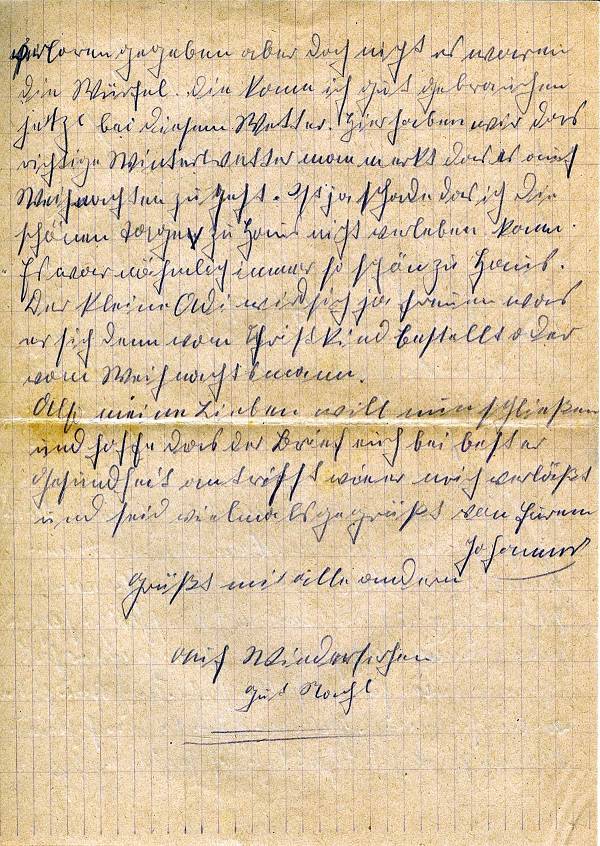 verloren gegeben aber doch nicht es waren
die Würfel. Die kann ich gut gebrauchen
jetzt bei diesem Wetter. Hier haben wir das
richtige Winterwetter man merkt das es auf
Weihnachten zu geht. Ist ja schade das ich die
schönen Tage zu Haus nicht verleben kann.
Es war nähmlich immer so schön zu Haus.
Der kleine Adi wird sich ja freuen was
er sich denn vom Christkind bestellt oder
vom Weihnachtsmann.
Also meine Lieben will nun schließen
und hoffe das der Brief euch bei bester
Gesundheit antrifft wie er mich verläßt
und seid vielmals gegrüßt von Eurem
Johannes
Grüßt mir alle andern
Auf Wiedersehen
Gut Nacht